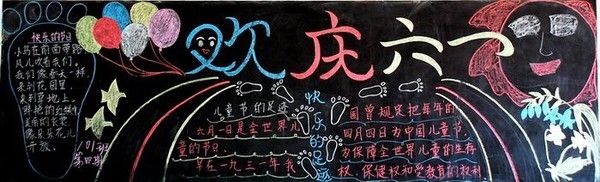 欢庆六一
快乐的节日
小鸟在前面带路
风儿吹着我们,
我们像春天一样,
来到花园里,
来到草地上。
鲜艳的红领巾
美丽的衣裳
像朵朵花儿
开放。
101班
第四期
儿童节的足迹
六月一日是全世界儿
童的节日.
早在一九三一年我
快乐的足迹
国曾规定把每年的
四月四日为中国儿童节,
为保障全世界儿童的生存
权、保健权和受教育的权利